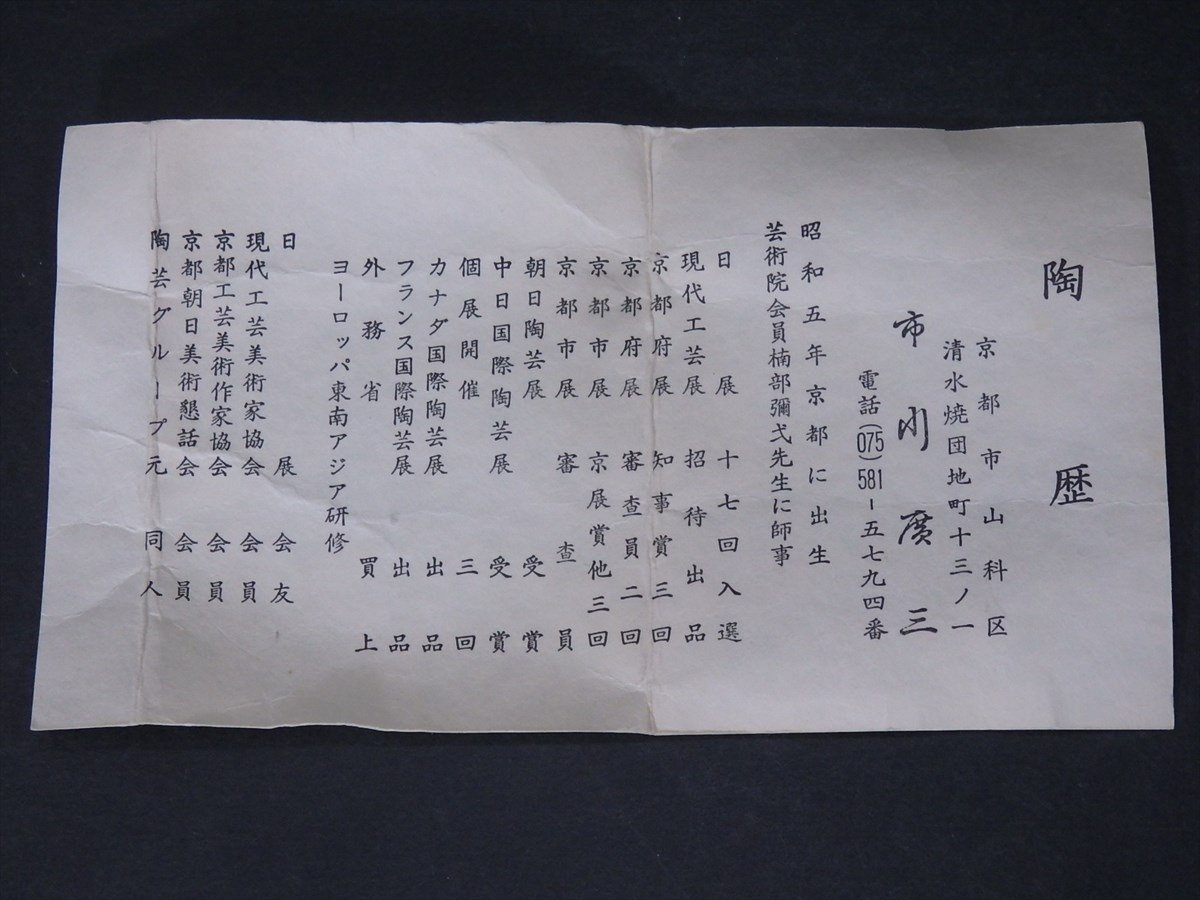 陶歴
京都市山科区
清水焼団地町十三ノ一
市川廣三
電話(075)581-五七九四番
昭和五年京都に出生
芸術院会員楠部彌弌先生に師事
日展 十七回入選
現代工芸展 招待出品
京都府展 知事賞三回
京都府展 審査員二回
京都市展 京展賞他三回
京都市展 審査員
朝日陶芸展 受賞
中日国際陶芸展 受賞
個展開催 三回
カナダ国際陶芸展 出品
フランス国際陶芸展 出品
外務省 買上
ヨーロッパ東南アジア研修
日展 会友
現代工芸美術家協会 会員
京都工芸美術作家協会 会員
京都朝日美術懇話会 会員
陶芸グループ元 同人